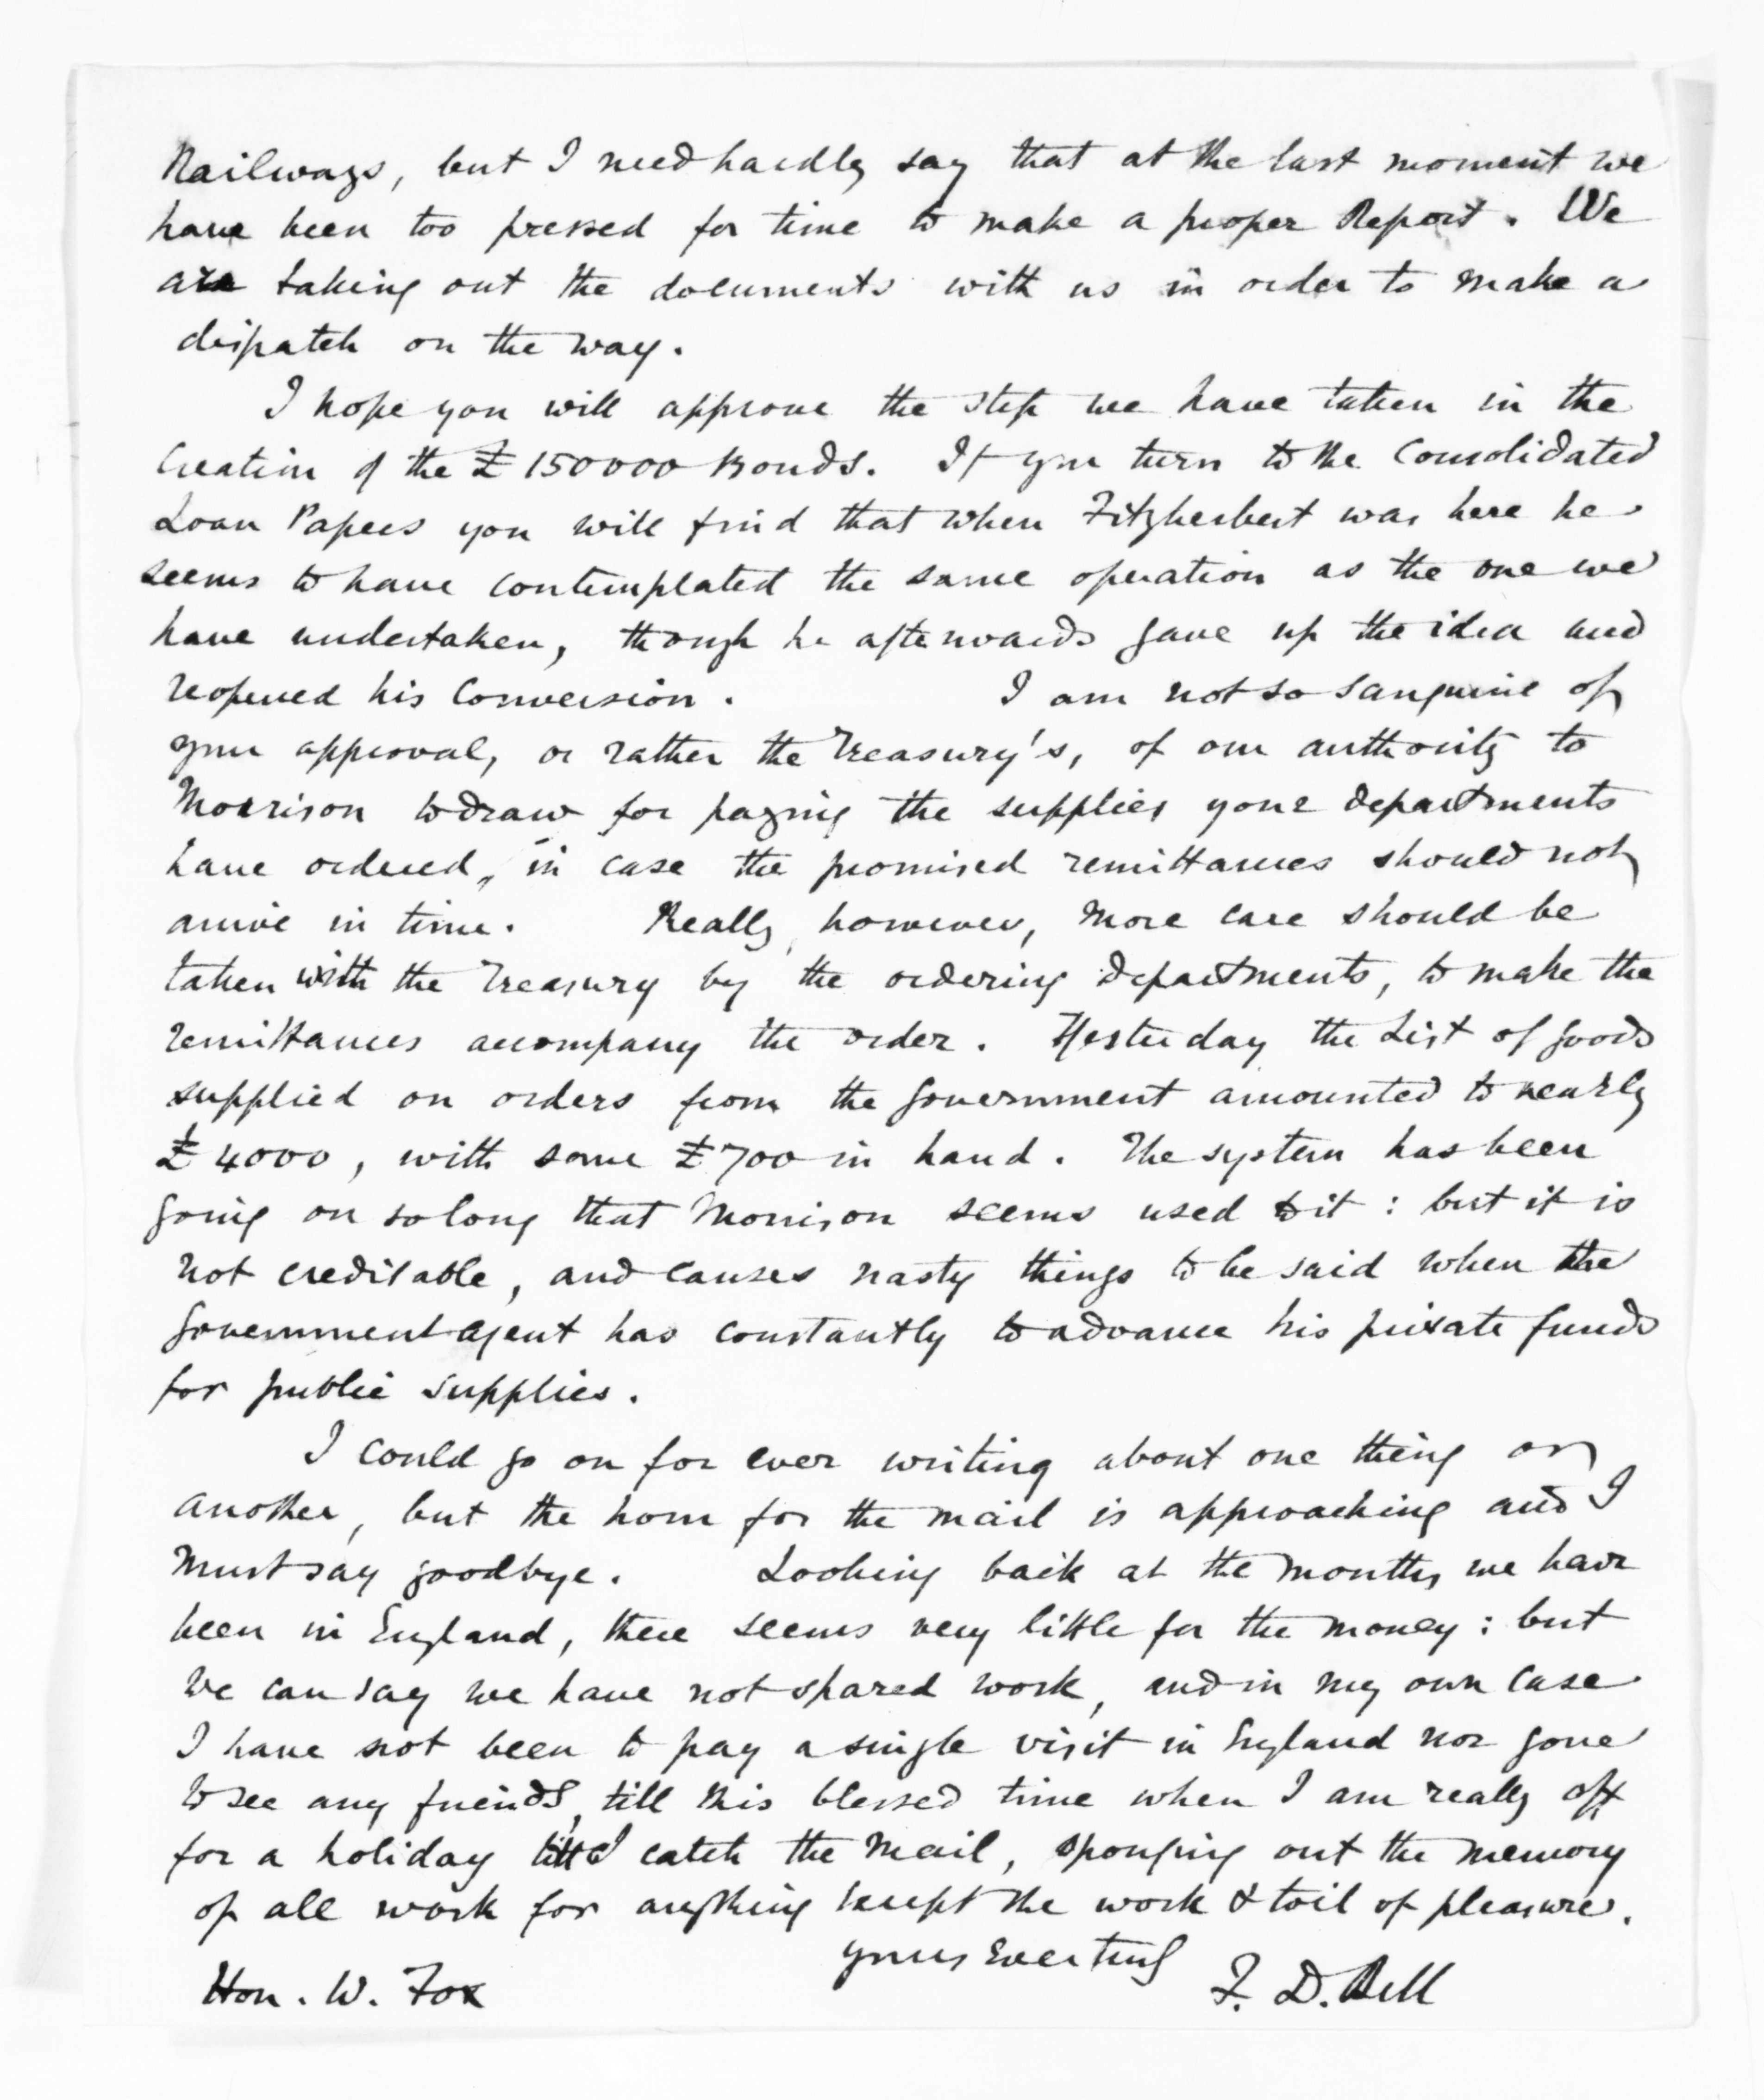 Railways, but I need hardly say that at the last moment we
have been too pressed for time to make a proper Report. We
are taking out the documents with us in order to make a
dispatch on the way.
I hope you will approve the step we have taken in the
Creation of the £150000 Bonds. If you turn to the Consolidated
Loan Papers you will find that when Fitzherbert was here he
seems to have contemplated the same operation as the one we
have undertaken, though he afterwards gave up the idea and
reopened his Conversion. I am not so sanguine of
your approval, or rather the Treasury's, of our authority to
Morrison to draw for paying the supplies your departments
have ordered, in case the promised remittances should not
arrive in time. Really, however, more care should be
taken with the Treasury by the ordering departments, to make the
remittances accompany the order. Yesterday the List of goods
supplied on orders from the Government amounted to nearly
£4000, with some £700 in hand. The system has been
going on so long that Morrison seems used to it: but it is
not creditable, and causes nasty things to be said when the
Government agent has constantly to advance his private funds
for public supplies.
I could go on for ever writing about one thing or
another, but the hour for the mail is approaching and I
must say goodbye. Looking back at the months we have
been in England, there seems very little for the money: but
we can say we have not spared work, and in my own case
I have not been to pay a single visit in England nor gone
to see any friends, till this blessed time when I am really off
for a holiday till I catch the Mail, sponging out the memory
of all work for anything except the work & toil of pleasure.
yours ever truly F. D. Bell
Hon. W. Fox